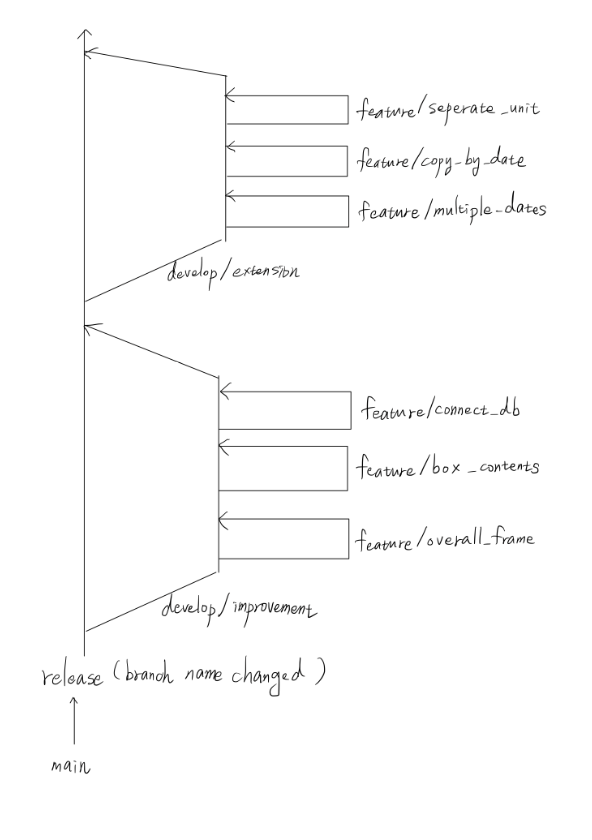 feature/seperate_unit
feature/copy_by_date
feature/multiple_dates
develop/extension
feature/connect_db
feature/box_contents
feature/overall_frame
develop/improvement
release (branch name changed)
main